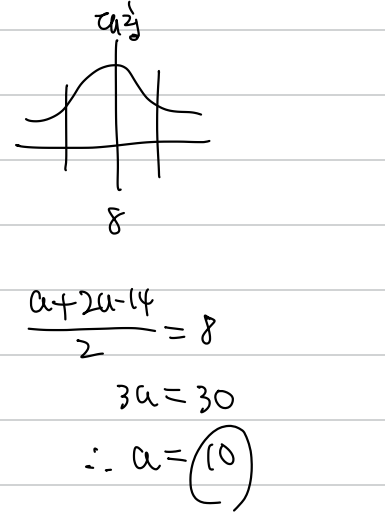 8
a+2a-14 / 2 = 8
3a = 30
∴ a = 10